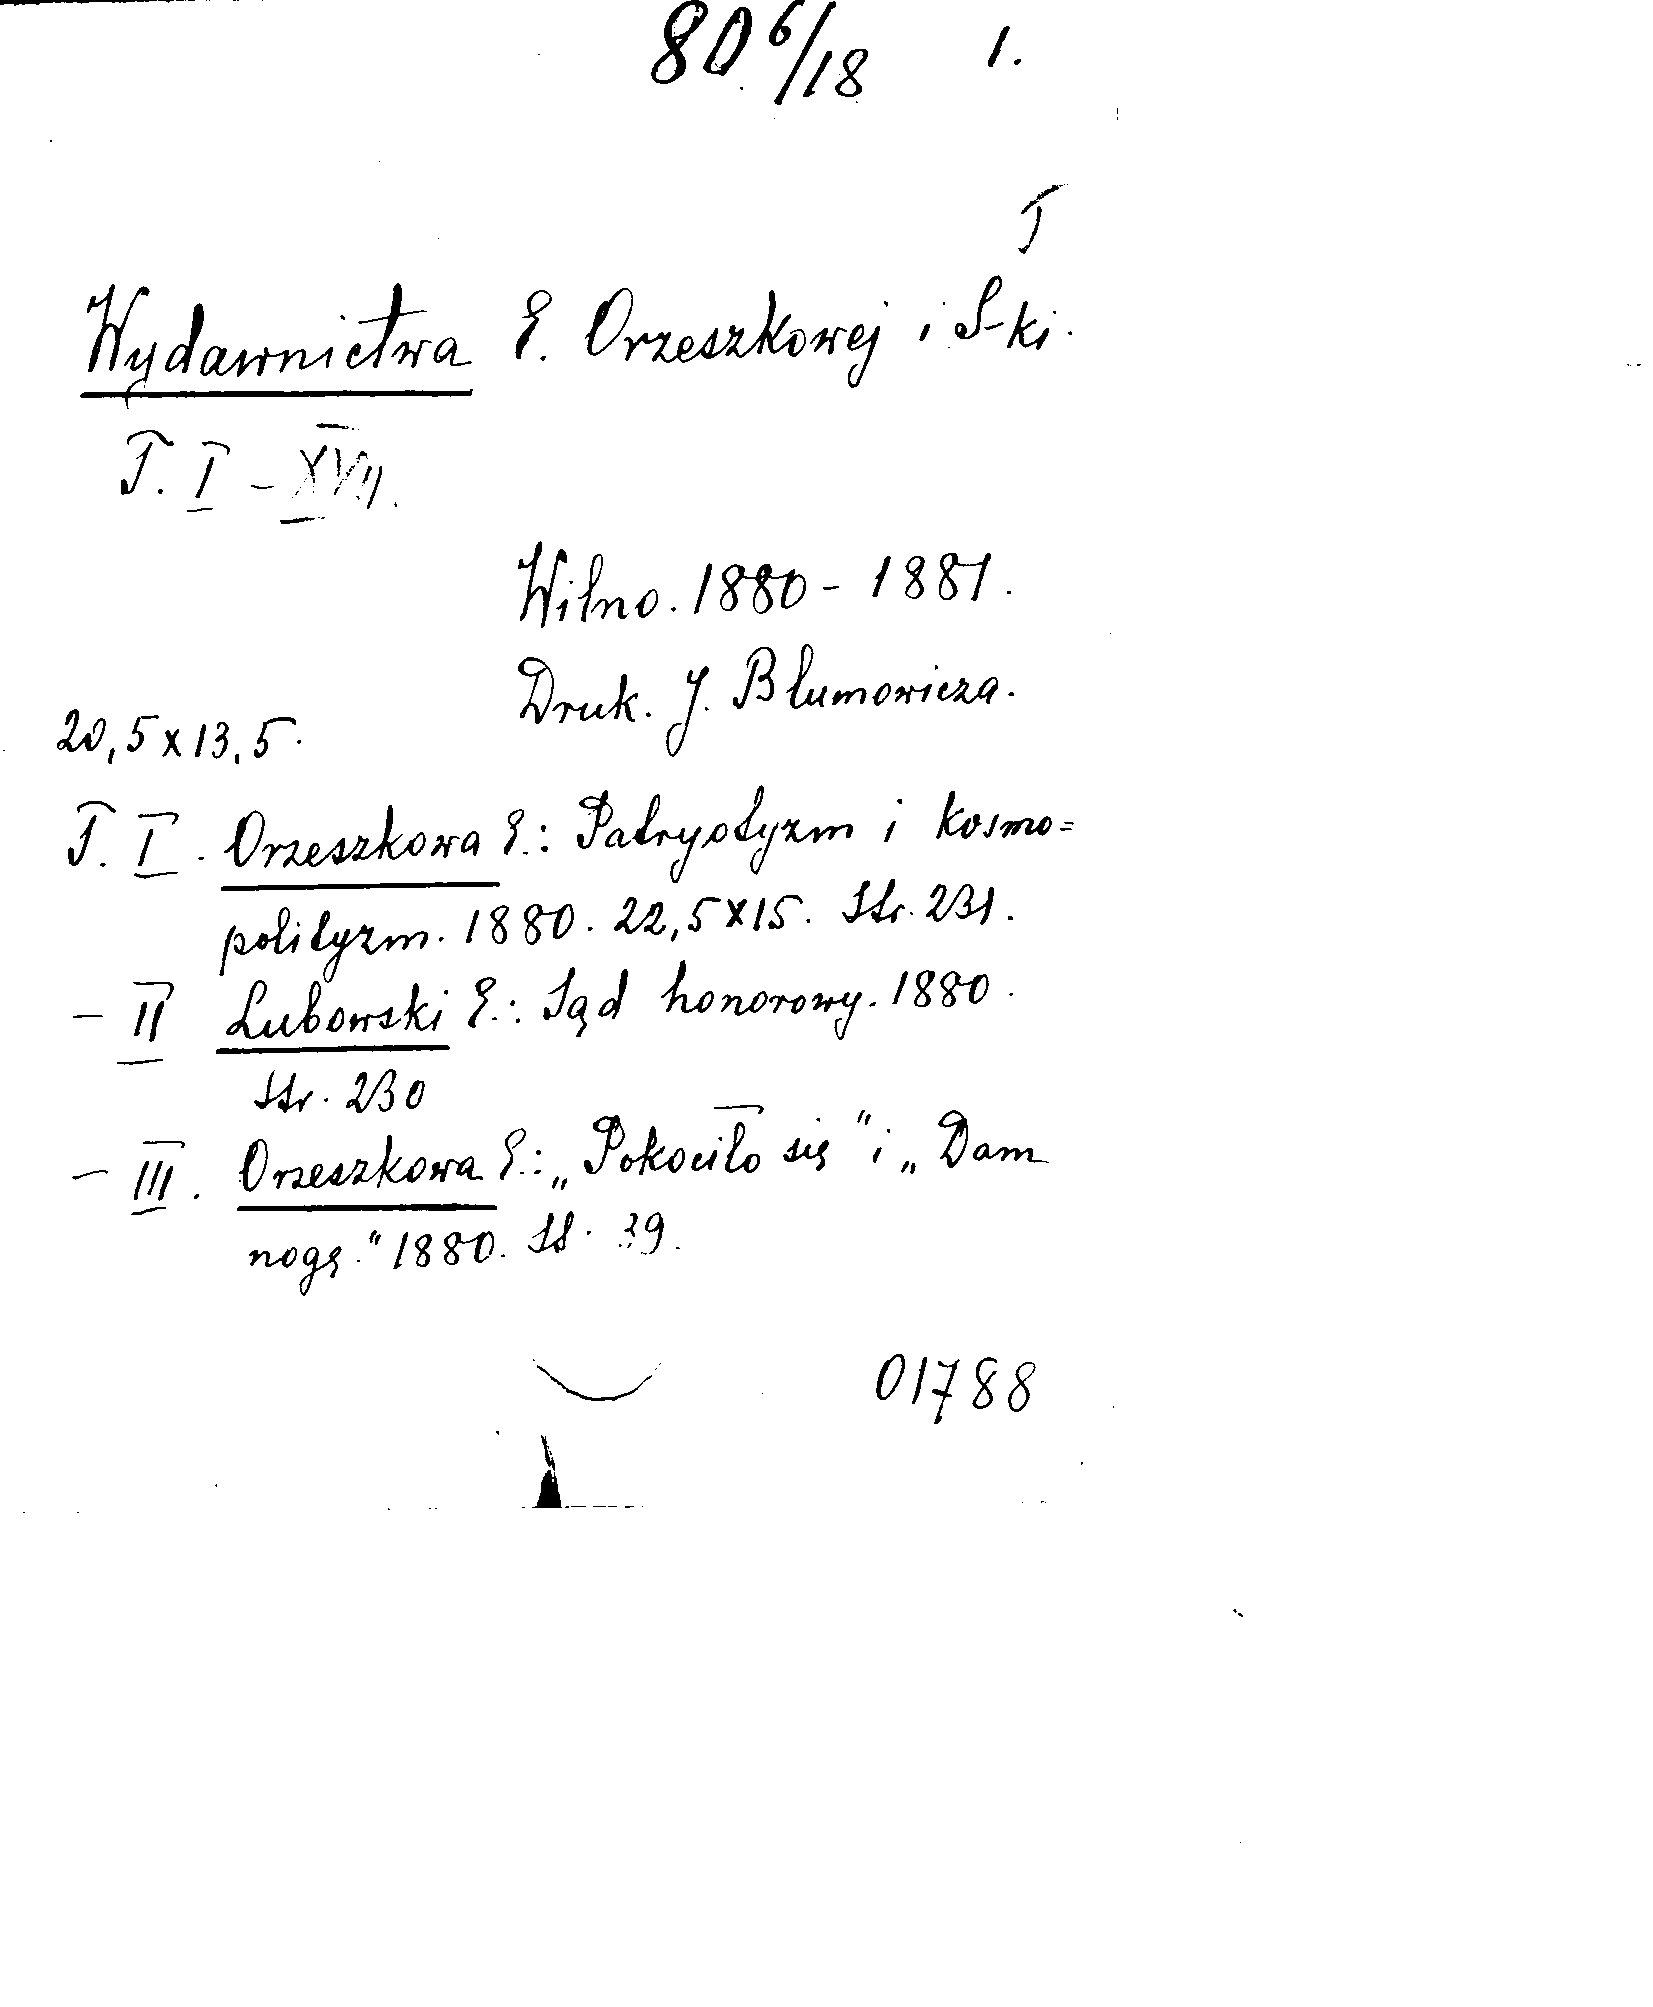 80 6/18 1.
T
Wydawnictwa E. Orzeszkowej i S-ki.
T. I - XVII.
Wilno. 1880 - 1881.
Druk. J. Blumowicza.
20,5 x 13,5.
T. I. Orzeszkowa E.: Patryotyzm i kosmo=
polityzm. 1880. 22,5 x 15. Str. 231.
- II Lubowski E.: Sąd honorowy. 1880.
Str. 230
- III. Orzeszkowa E.: „Pokociło się" i „Dam
nogę." 1880. St. 39.
01788